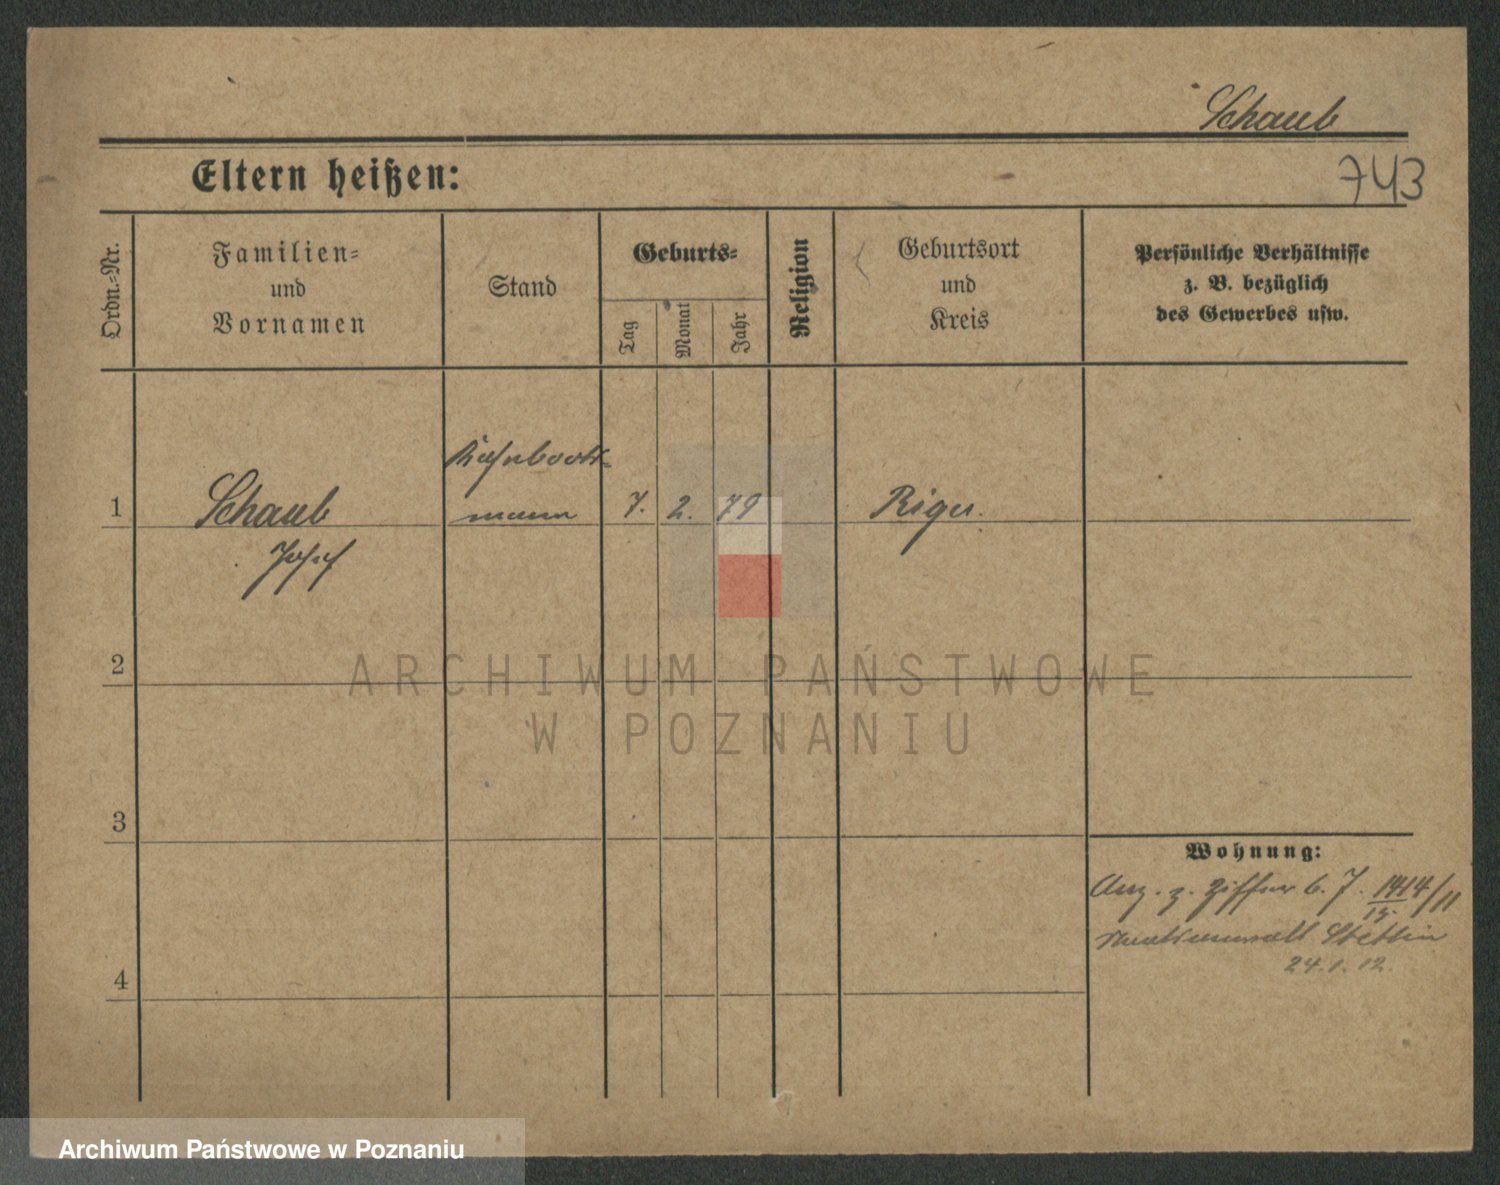 Schaub
743
Eltern heißen:
Ordn.-Nr.
Familien-
und
Vornamen
Stand
Geburts-
Tag
Monat
Jahr
Religion
Geburtsort
und
Kreis
Persönliche Verhältnisse
z. B. bezüglich
des Gewerbes usw.
1
Schaub
mann
7. 2. 79
Josef
2
ARCHIWUM PAŃSTWOWE
W POZNANIU
3
Wohnung:
Anz. z. Ziffer 6. 7.
15
Stettin
24.1.12.
4
Archiwum Państwowe w Poznaniu